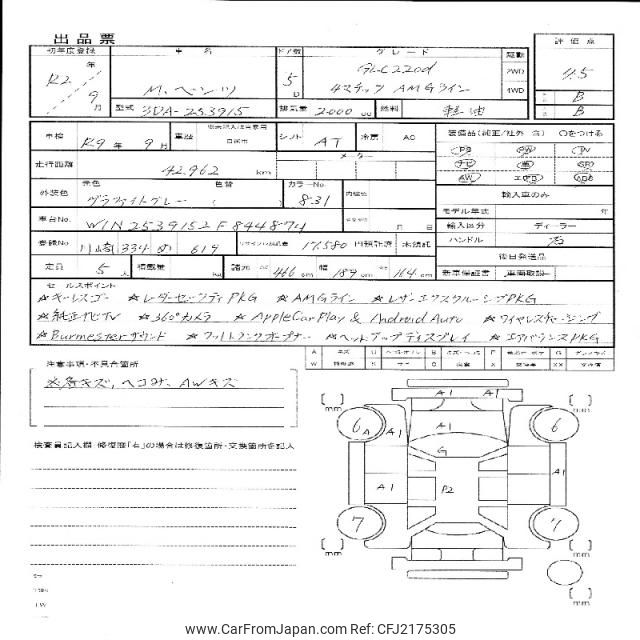 出品票
初年度登録
車名
ドア数
グレード
駆動
評価点
R2年
9月
M.ベンツ
5
D
GLC220d
4マチック AMGライン
2WD
4WD
4.5
B
B
型式
3DA-253915
排気量
2000
cc
燃料
軽油
車検
R9年 9月
車歴
自家用
シフト
AT
冷房
AC
装備品(純正/社外 含) 〇をつける
走行距離
42.962
km
メーター
PS
PW
TV
ナビ
革
SR
AW
エアB
輸入車のみ
外装色
元色
色替
グラファイトグレー
カラーNo.
831
内装色
モデル年式
年
車台No.
W1N2539152F844874
月 日
輸入区分
ディーラー
登録No.
川崎 334 619
リサイクル預託金
17.580
円
預託済
未預託
ハンドル
右
定員
5
人
積載量
kg
諸元
466
cm
幅
189
cm
164
cm
後日発送品
新車保証書
車両取説
セールスポイント
★キーレスゴー ★レーダーセーフティPKG ★AMGライン ★レザーエクスクルーシブPKG
★純正ナビTV ★360°カメラ ★AppleCarPlay & Android Auto ★ワイヤレスチャージング
★Burmesterサウンド ★フットトランクオープナー ★ヘッドアップディスプレイ ★エアバランスPKG
注意事項・不具合箇所
※各キズ、ヘコミ、AWキズ
検査員記入欄 修復歴「有」の場合は修復箇所・交換箇所を記入
A
キズ
U
B
P
G
W
S
C
X
XX
mm
mm
6
A
A1
A1
A1
A1
A1
6
G
A1
P2
A1
7
7
mm
mm
mm
© CarFromJapan
www.CarFromJapan.com Ref: CFJ2175305